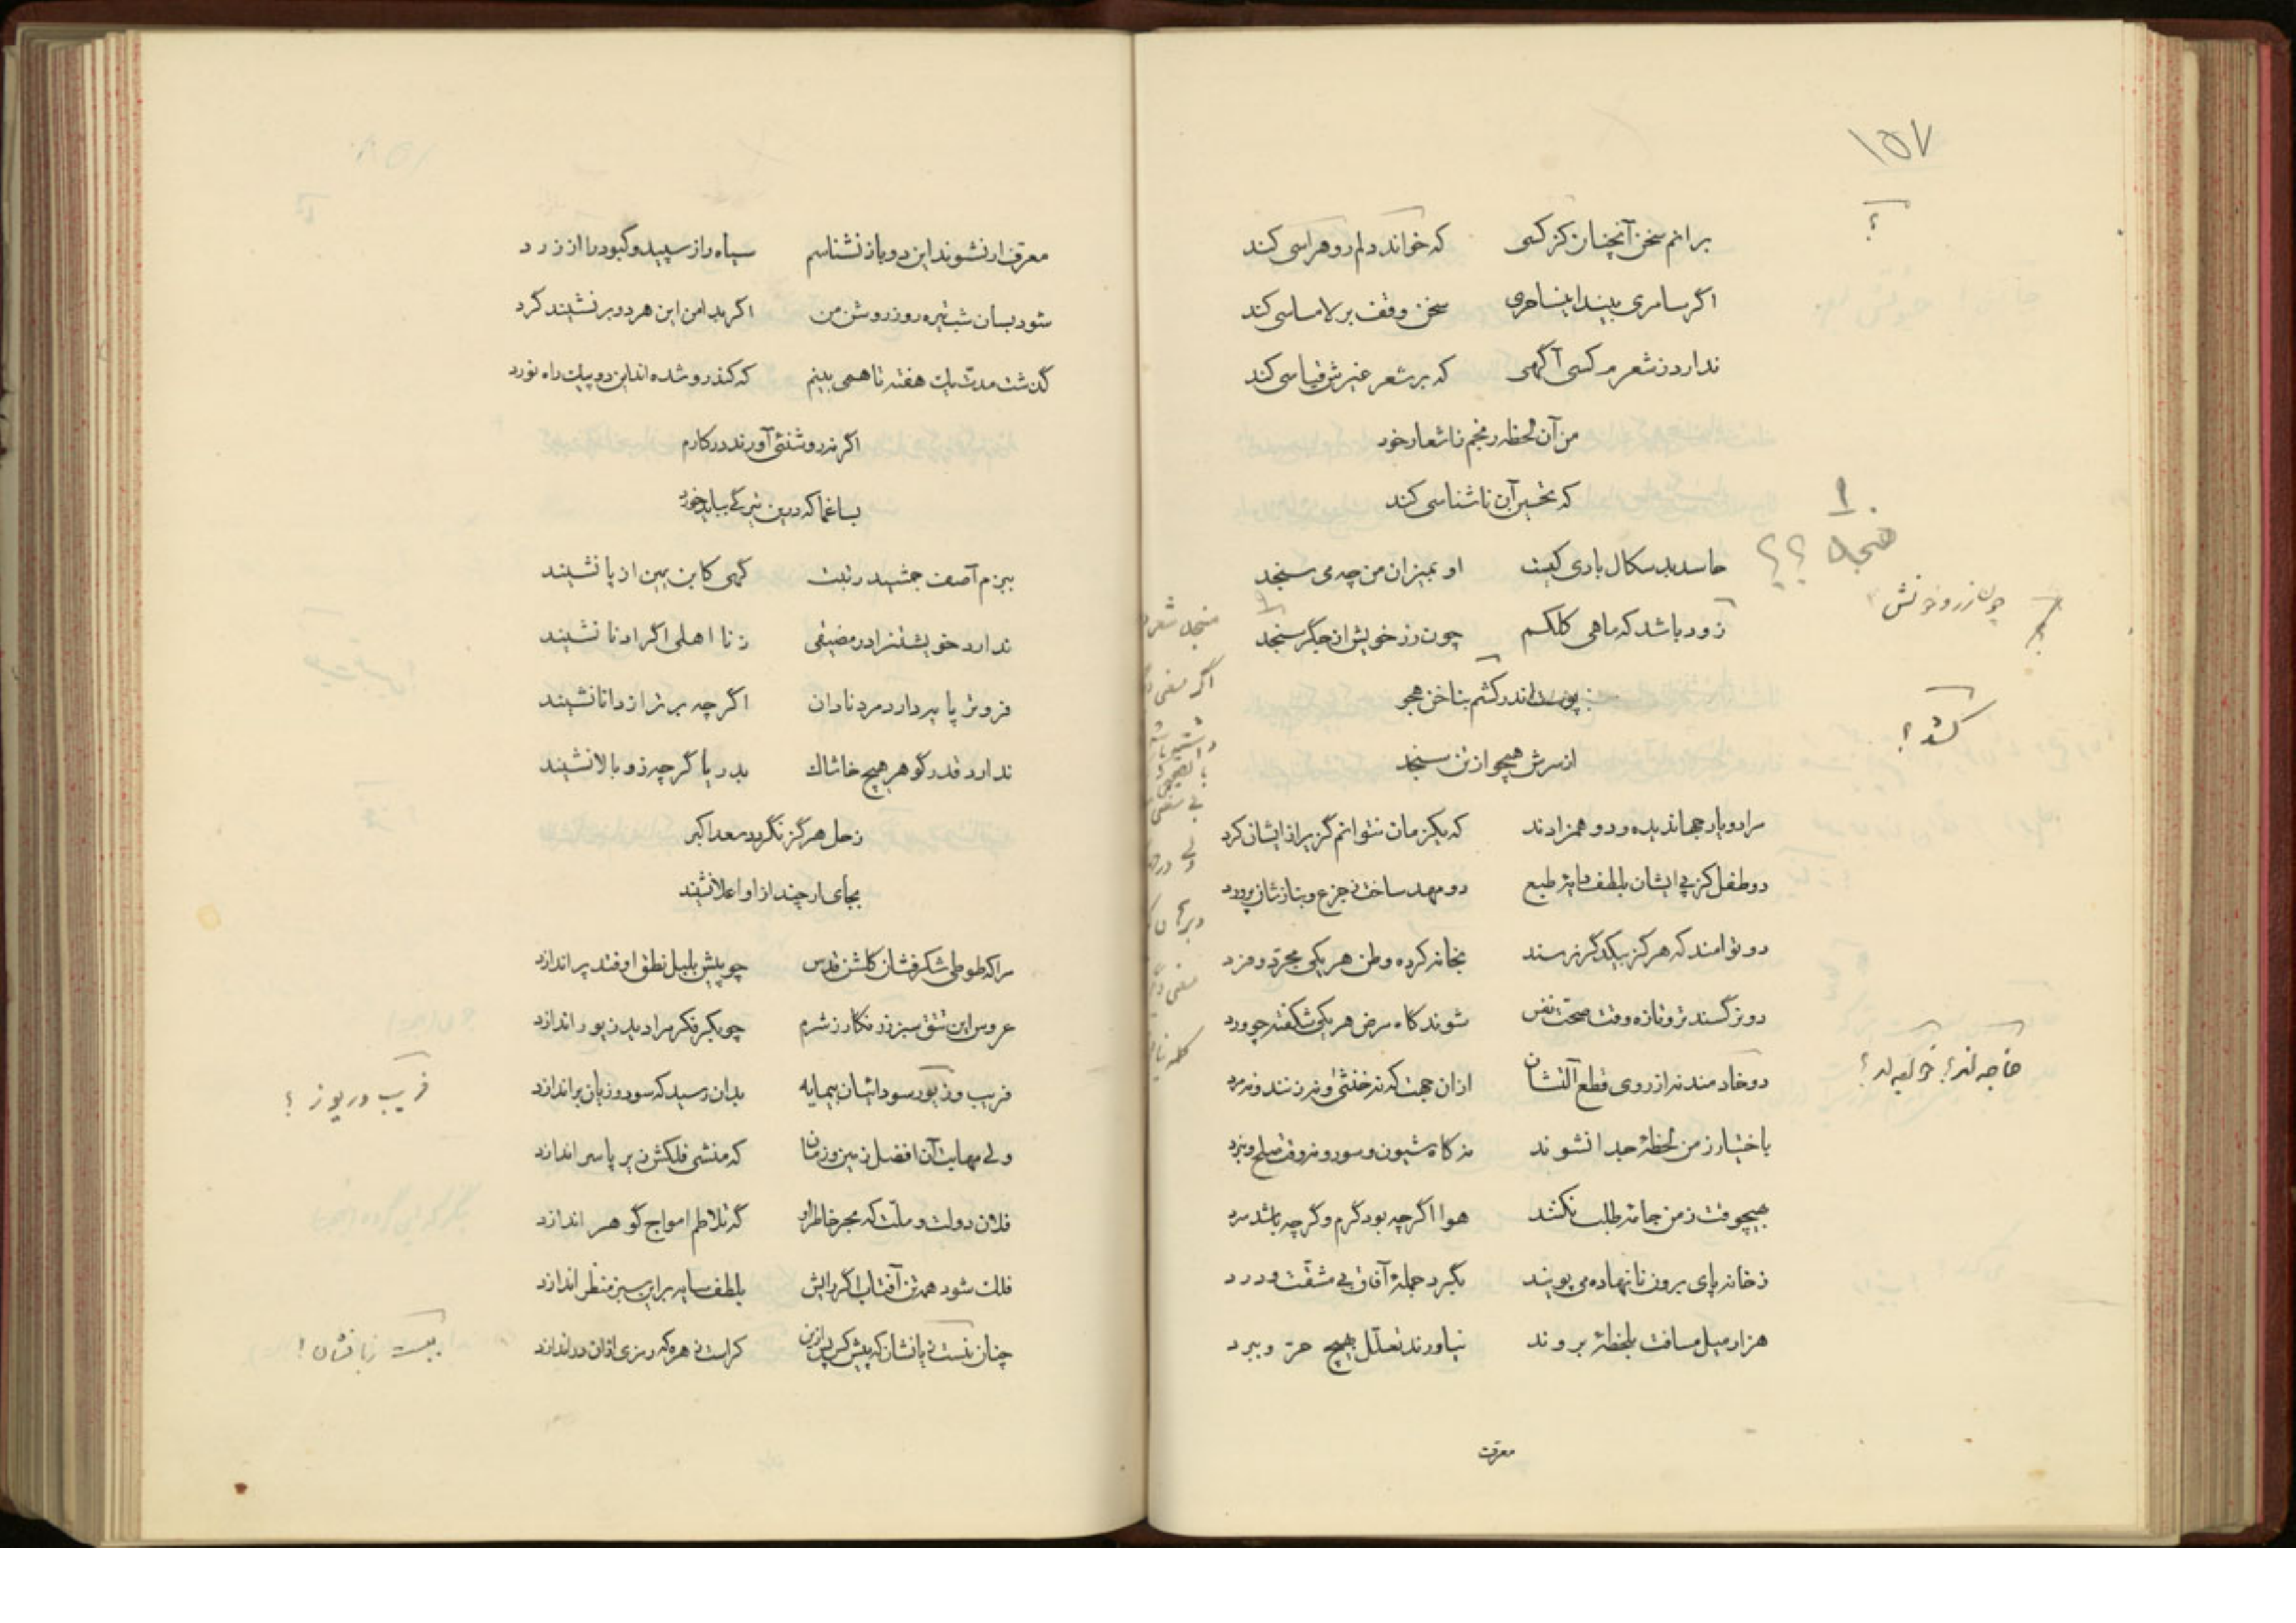 ١٥٧
؟
برانم سخن آنچنان کز کسی که خواند دلم رو هراسی کند
اگر سامری بیند این ساحری سخن وقف بر لامساسی کند
ندارد ز شعرم کسی آگهی که بر شعر غیرش قیاسی کند
من آن لحظه رنجم ز اشعار خود
که تحسین آن ناشناسی کند
حاسد بد سکال باری کیست او بمیزان من چه می سنجد
زود باشد که ماهی کلکم چون زر خویش از جگر سنجد
پوست اندر کشم بناخن هجو
از سرش همچو از تن سنجد
مرا دو یار جهاندیده و دو همزادند که یکزمان نتوانم گزیر از ایشان کرد
دو طفل کز پی ایشان بلطف دایه طبع دو مهد ساخت ز جزع و بناز شان پرورد
دو توامند که هرگز بیکدگر نرسند بخانه کرده وطن هر یکی مجرد و فرد
دو نرگسند تر و تازه وقت صحت نفس شوند گاه مرض هر یکی شکفته چو ورد
دو خادمند نه از روی قطع آلتشان ازان جهت که نه خنثی و نه زنند و نه مرد
باختیار ز من لحظهٔ جدا نشوند نه گاه شیون و سور و نه وقت صلح و نبرد
بهیچوقت ز من جامه طلب نکنند هوا اگرچه بود گرم و گرچه باشد سرد
ز خانه پای برون نانهاده می پویند بگرد جملهٔ آفاق بی مشقت و درد
هزار میل مسافت بلحظهٔ بروند نیاورند تعلل بهیچ حر و ببرد
معرفت
منجد ؟؟
کشد ؟
معرف ار نشوند این دو باز نشناسم سیاه را ز سپید و کبود را از زرد
شود بسان شب تیره روز روشن من اگر بدامن این هر دو بر نشیند گرد
گذشت مدت یک هفته تا همی بینم که کندرو شده اند این دو پیک راه نورد
اگر نه روشنئی آورند در کارم
بسا غما که درین تیرگی بباید خورد
ببزم آصف جمشید رتبت گهی کابن یمین از پا نشیند
ندارد خویشتن را در مضیقی ز نا اهلی اگر ادنا نشیند
فروتر پایه دارد مرد نادان اگرچه برتر از دانا نشیند
ندارد قدر گوهر هیچ خاشاک بدریا گرچه زو بالا نشیند
زحل هرگز نگردد سعد اکبر
بجای ار چند ازو اعلا نشیند
مرا که طوطی شکرفشان گلشن قدس چو پیش بلبل نطق اوفتد پر اندازد
عروس این تتق سبز زرنگار ز شرم چو بکر فکر مرا دید زیور اندازد
فریب و ز یور سودائیان بیمایه بدان رسید که سود و زیان بر اندازد
ولی مهابت آن افضل زمین و زمان که منشی فلکش زیر پا سر اندازد
فلان دولت و ملت که بحر خاطر او گه تلاطم امواج گوهر اندازد
فلک شود همه تن آفتاب اگر رایش بلطف سایه برین سبز منظر اندازد
فریب و ریوز ؟
ببست زبانشان !